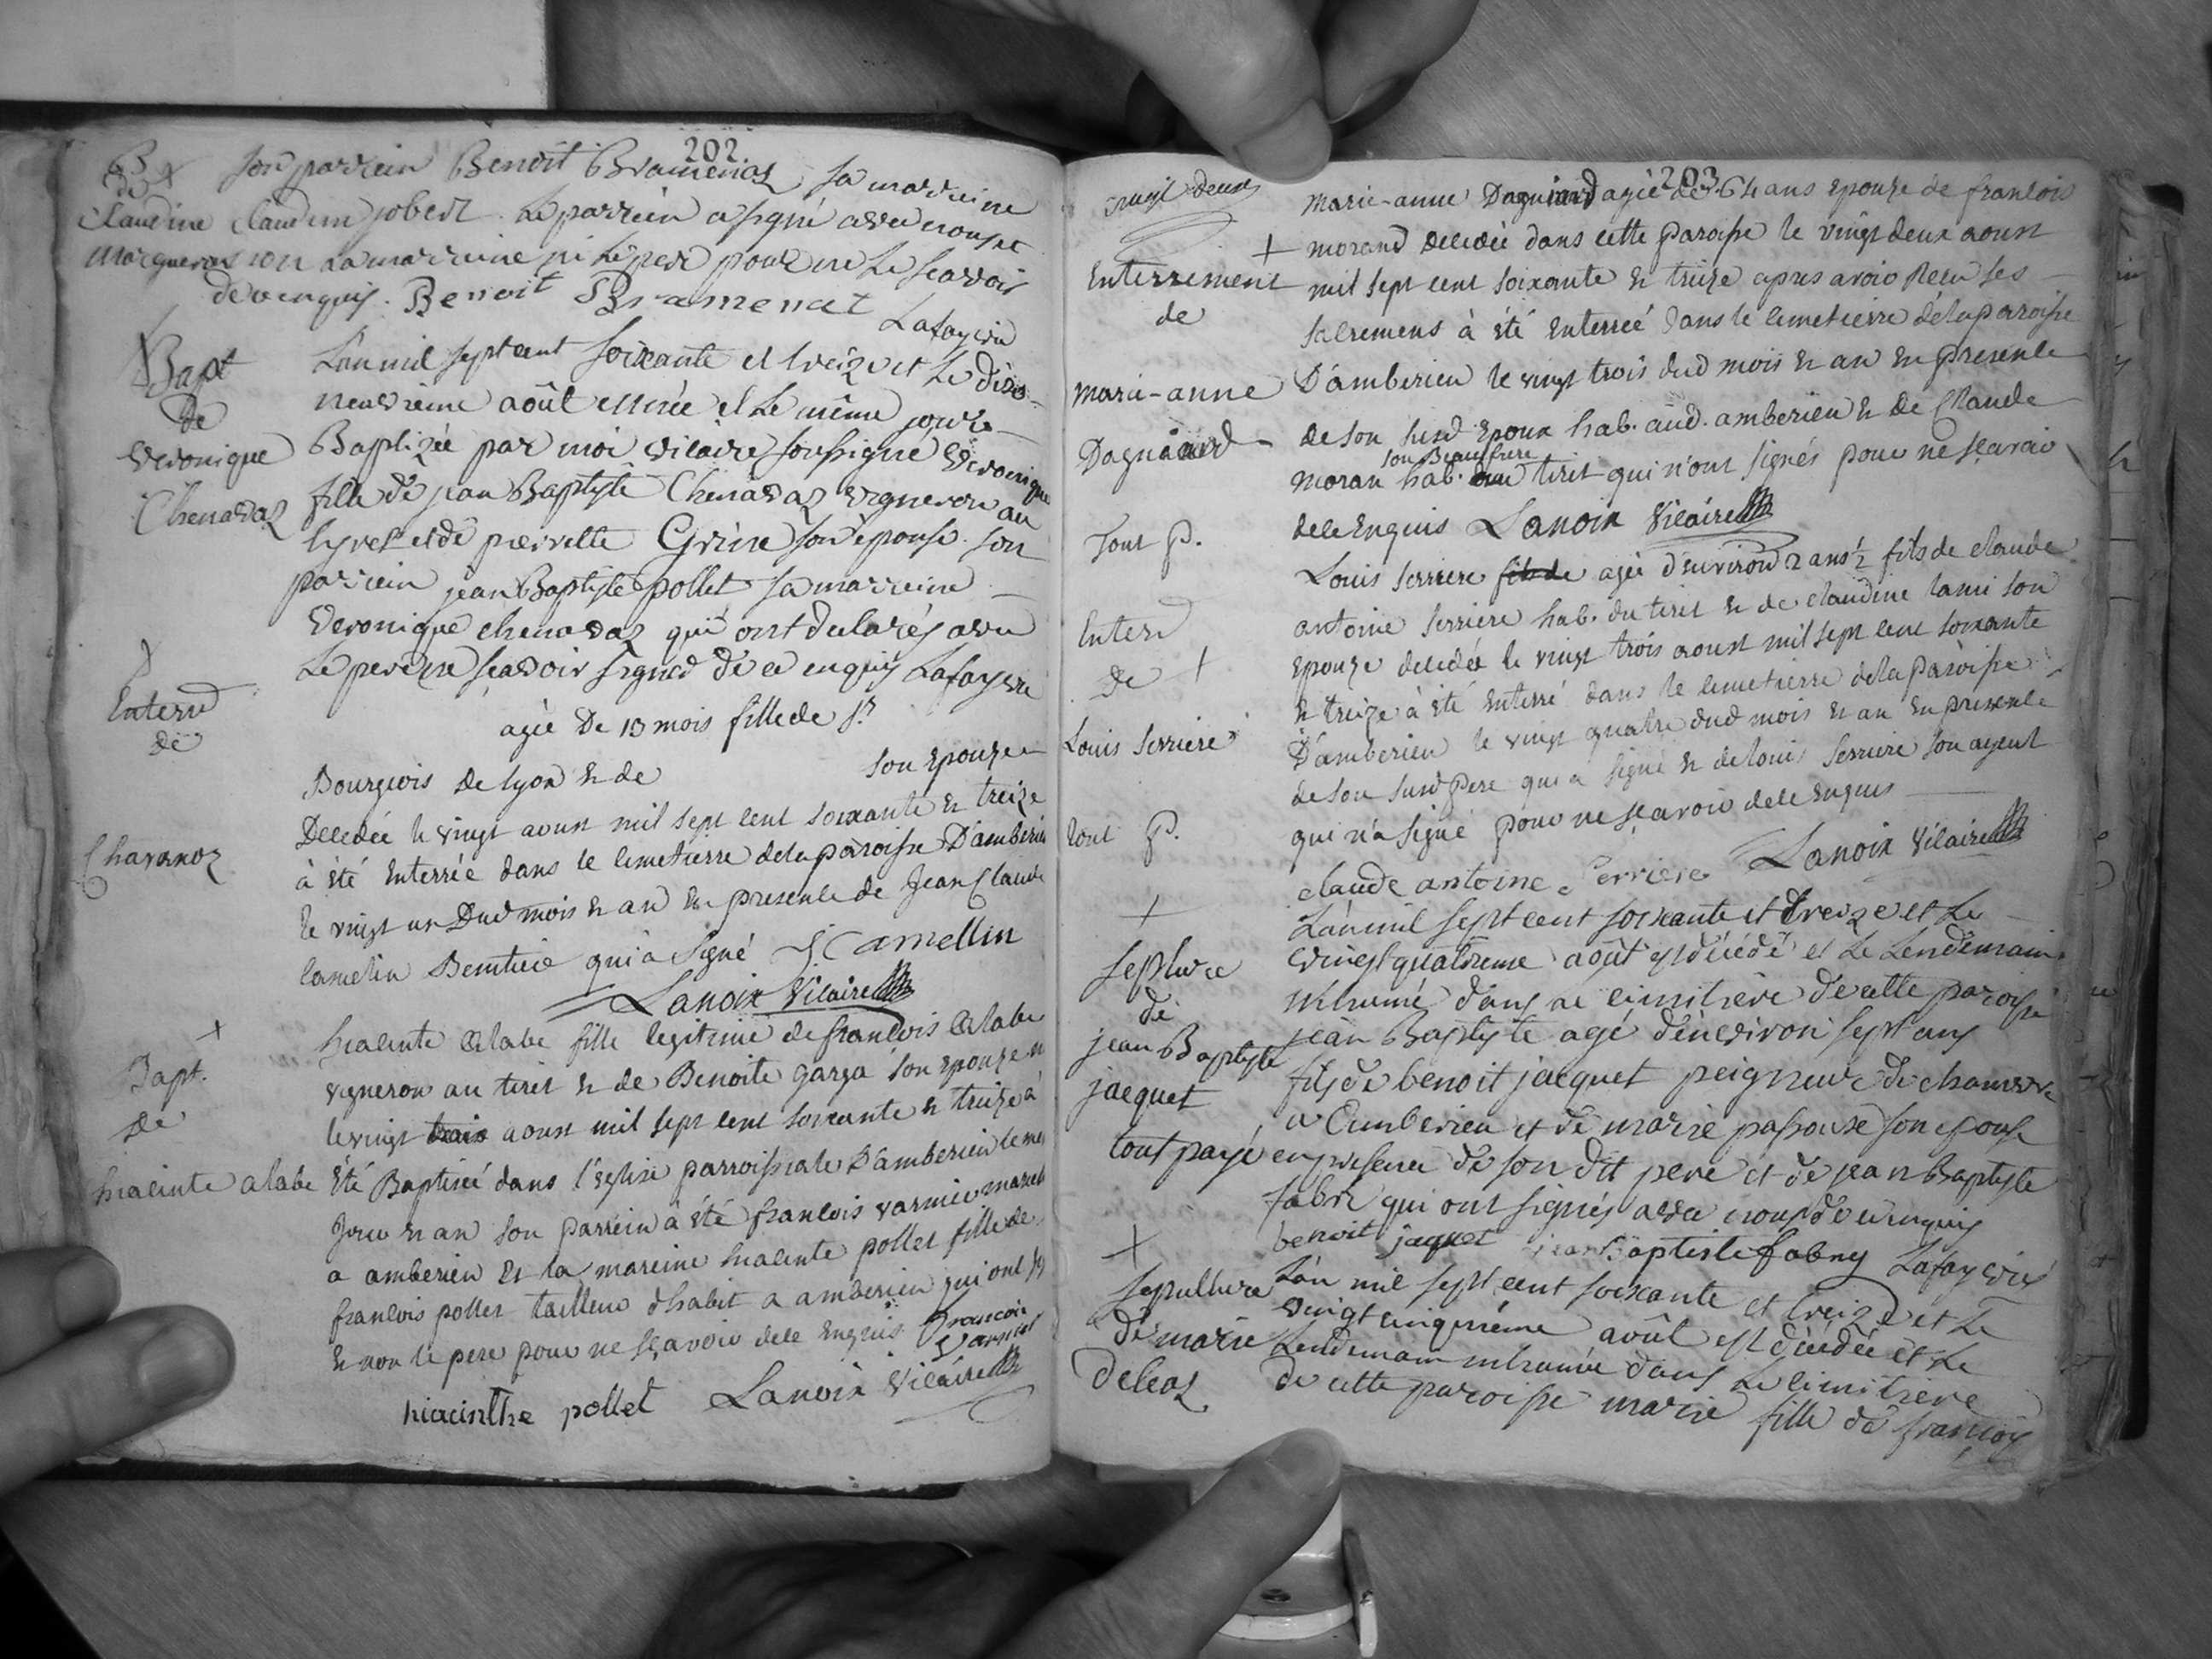 202
B
de
Claudine
Margueras
son parrein Benoit Bramenas sa marreine
Claudine jobert. Le parrein a signé avec nous et
non la marreine ni Le pere pour ne Le scavoir
de ce enquis. Benoit Bramenat Lafay vic
Bapt
de
Veronique
Chenavaz
L'an mil sept cent soixante et treize et Le dixe
neuvieme août est née et Le même jour
Baptizée par moi vicaire soussigné Veronique
fille de jean Baptiste Chenavaz vigneron au
et de pierrette son épouse son
parrein jean Baptiste pollet sa marreine
Veronique chenavaz qui ont declarés avec
Le pere ne scavoir signer de ce enquis Lafay vic
Enterr
de
Chavanoz
agée De 13 mois fille de Sr
Bourgeois de lyon & de son epouze
Decedée le vingt aoust mil sept cent soixante & treize
à été enterrée dans le cimetierre de la paroisse D'amberieu
le vingt un Dud mois & an En presence de Jean Claude
Camelin qui à signé J C amellin
Lanoix Vicaire
Bapt.
de
hiacinte alabe
hiacinte alabe fille legitime de francois alabe
vigneron au tiret & de Benoite garza son epouze
le vingt trois aoust mil sept cent soixante & treize à
Été Baptisée dans l'eglise parroissiale D'amberieu le mes
jour & an son parrein à été francois varnier
a amberieu Et la mareine hiacinte pollet fille de
francois pollet tailleur d'habit a amberieu qui ont sig
& non le pere pour ne scavoir de ce Enquis francois
varnier
hiacinthe pollet Lanoix Vicaire
203
vingt deux
Enterrement
de
marie-anne
Dagniard
Tout p.
marie-anne Dagniard agée de 64 ans epouze de francois
morand decedée dans cette paroisse le vingt deux aoust
mil sept cent soixante & treize apres avoir Receu ses
sacremens à été enterreé dans le cimetierre de la paroisse
D'amberieu le vingt trois dud mois & an en presence
de son susd Epoux hab. aud. amberieu & de Claude
son Beaufrere
moran hab. au tiret qui n'ont signés pour ne scavoir
de ce Enquis Lanoix Vicaire
Enterr
de
Louis serriere
tout p.
Louis serriere fils de agée d'environ 2 ans ½ fils de claude
antoine serriere hab. du tiret & de claudine lami son
epouze decedée le vingt trois aoust mil sept cent soixante
& treize à été enterré dans le cimetierre de la paroisse
D'amberieu le vingt quatre dud mois & an En presence
de son susd pere qui a signé & de louis serriere son ayeul
qui n'a signé pour ne scavoir de ce Enquis
claude antoine serriere Lanoix Vicaire
sepluree
de
jean Baptiste
jacquet
tout payé
L'an mil sept cent soixante et treize et Le
vingt quatrieme août est décédé et Le Lendemain
inhumé dans Le cimitiere de cette paroisse
jean Baptiste agé d'environ sept ans
fils de benoit jacquet peigneur de chanvre
a amberieu et de marie passoux son epouse
en presence de son dit pere et de jean Baptiste
fabri qui ont signés avec nous de ce enquis
benoit jaquet jean Baptiste fabry Lafay vic
sepulture
de marie
Deleaz
L'an mil sept cent soixante et treize et Le
vingt cinquieme août est décédée et Le
Lendemain inhumée dans Le cimitiere
de cette paroisse marie fille de françois